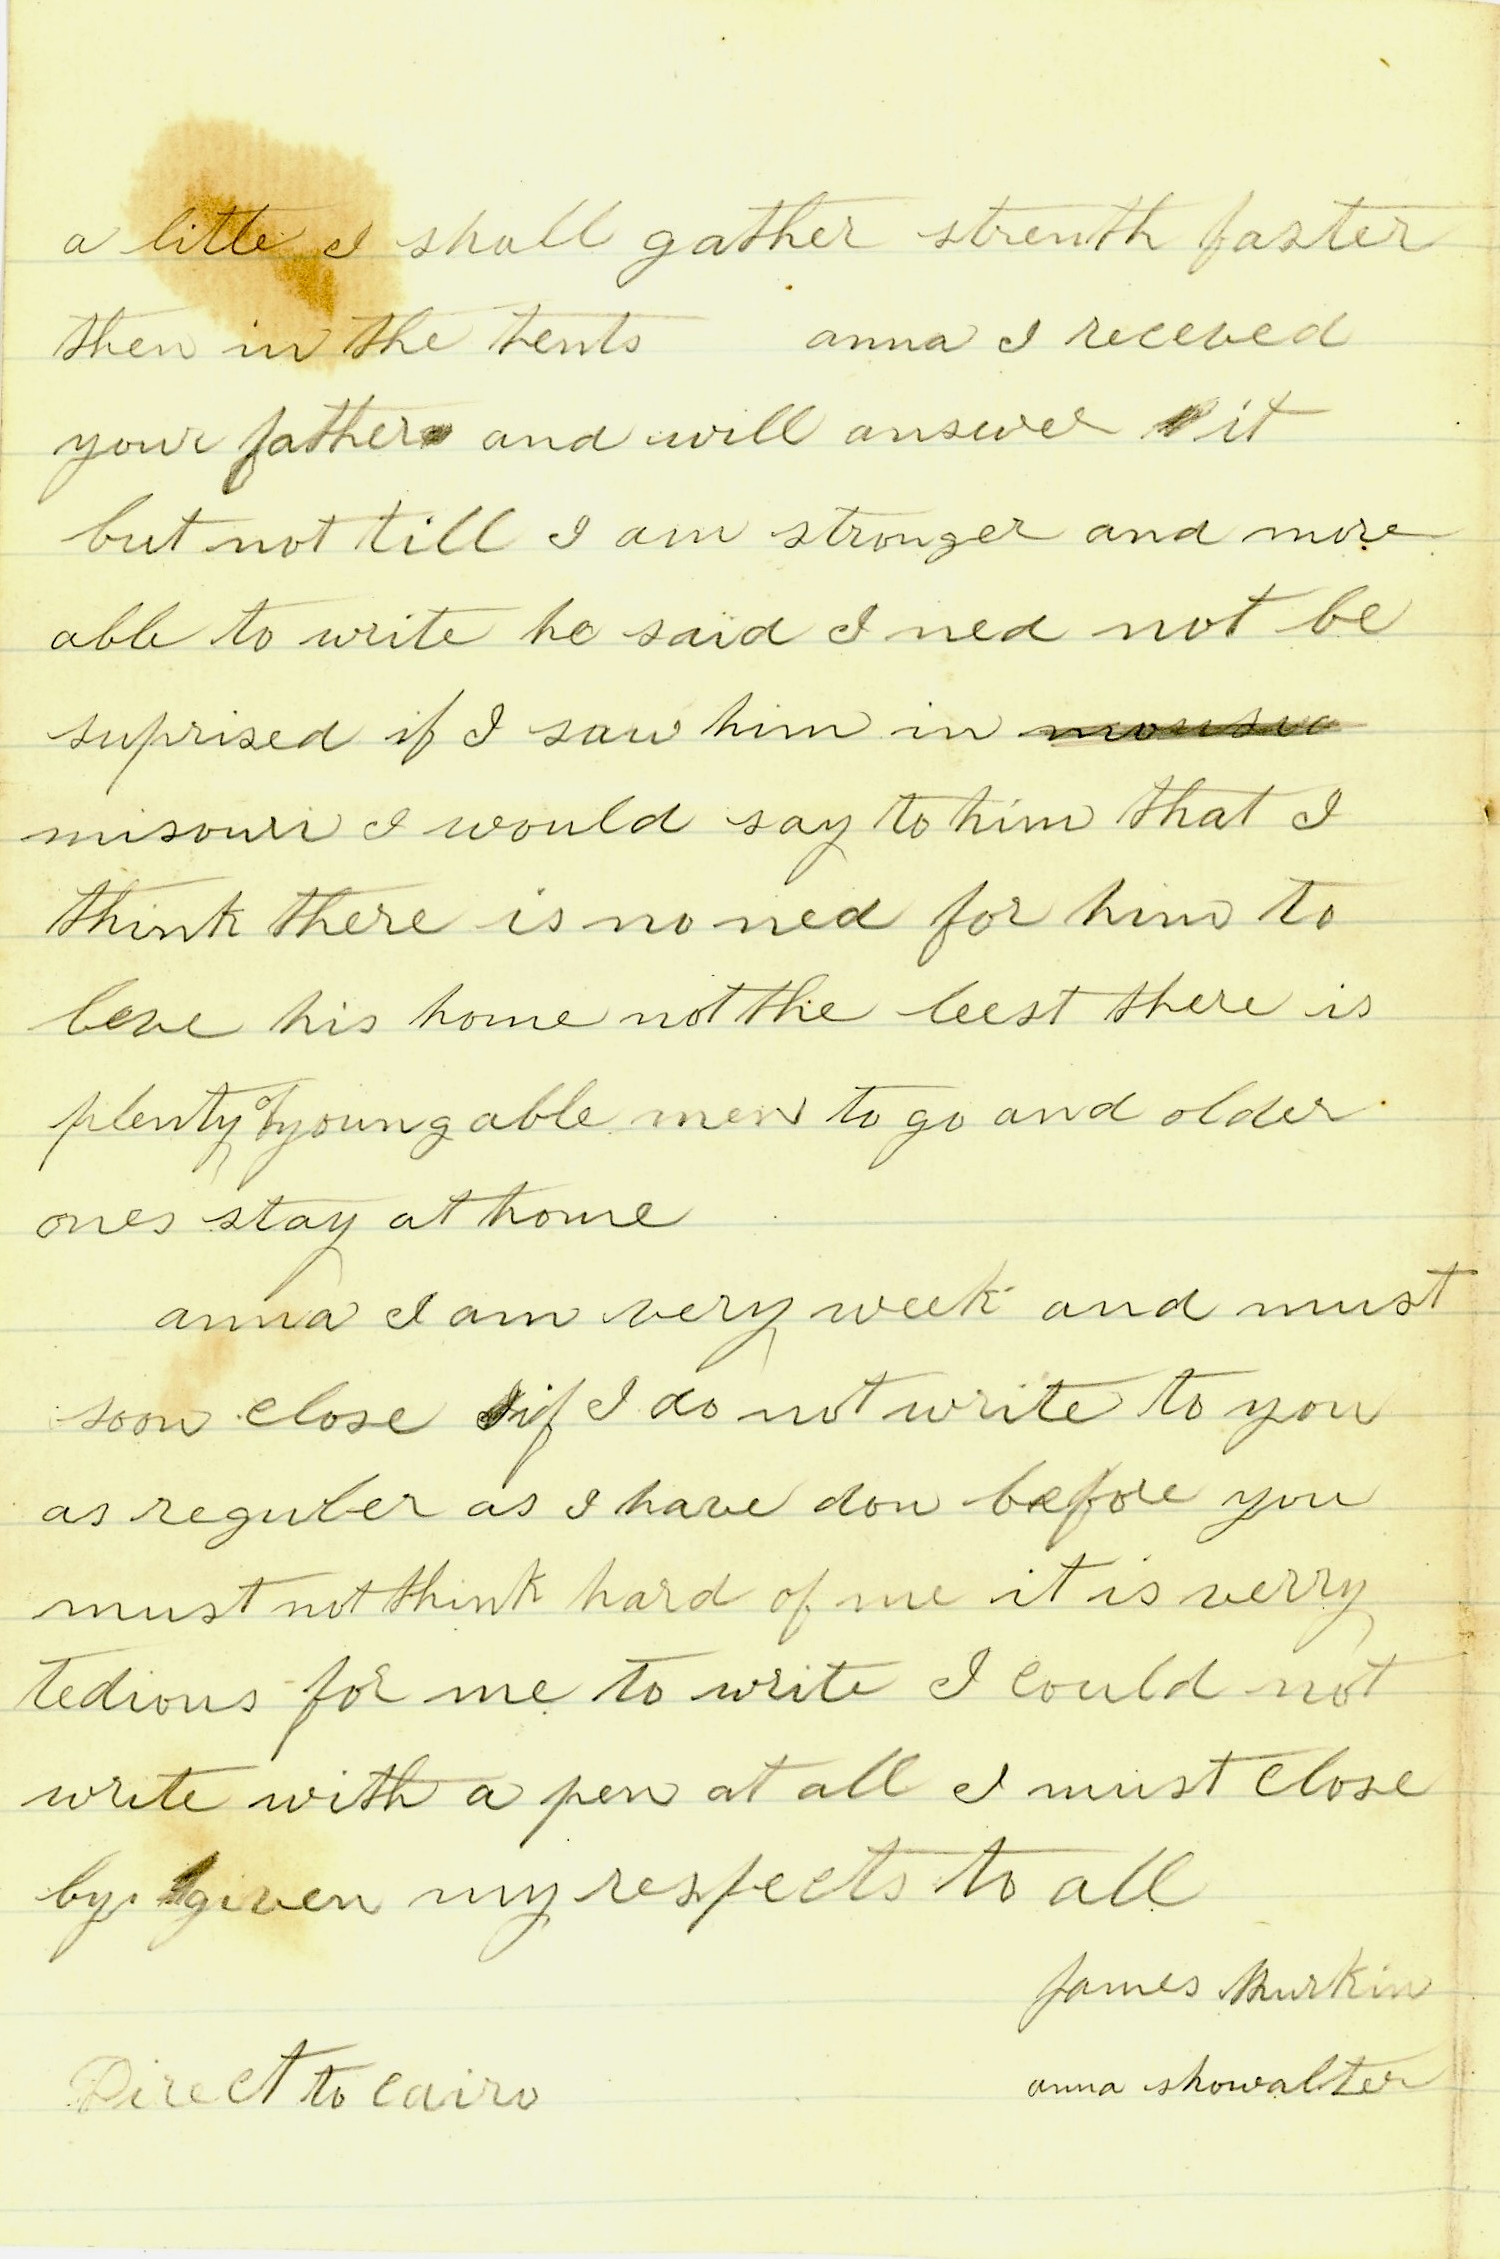 a litte I shall gather strenth faster
then in the tents anna I receved
your father and will answer it
but not till I am stronger and more
able to write he said I ned not be
suprised if I saw him in
misouri I would say to him that I
think there is no ned for him to
leve his home not the leest there is
plenty of young able men to go and older
ones stay at home
anna I am very week and must
soon close if I do not write to you
as reguler as I have don before you
must not think hard of me it is verry
tedious for me to write I could not
write with a pen at all I must close
by given my respects to all
James Durkin
anna showalter
Direct to Cairo